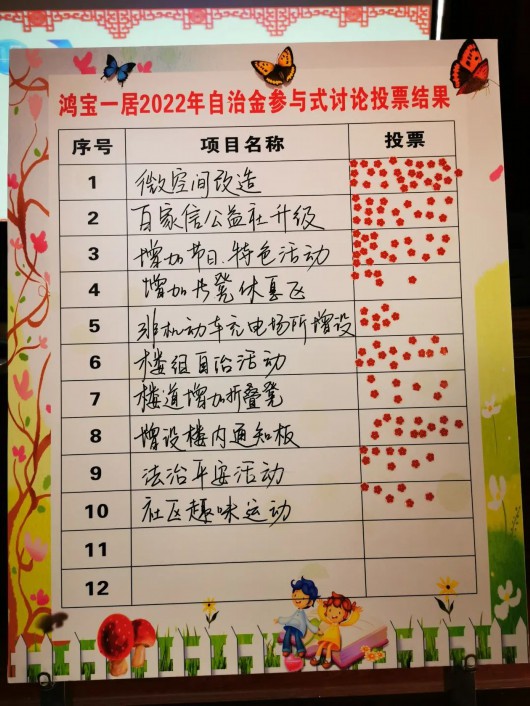 鸿宝一居2022年自治金参与式讨论投票结果
序号 项目名称 投票
1 微空间改造
2 百家信公益社升级
3 增加节日、特色活动
4 增加长凳休息区
5 非机动车充电场所增设
6 楼组自治活动
7 楼道增加折叠凳
8 增设楼内通知板
9 法治平安活动
10 社区趣味运动
11
12